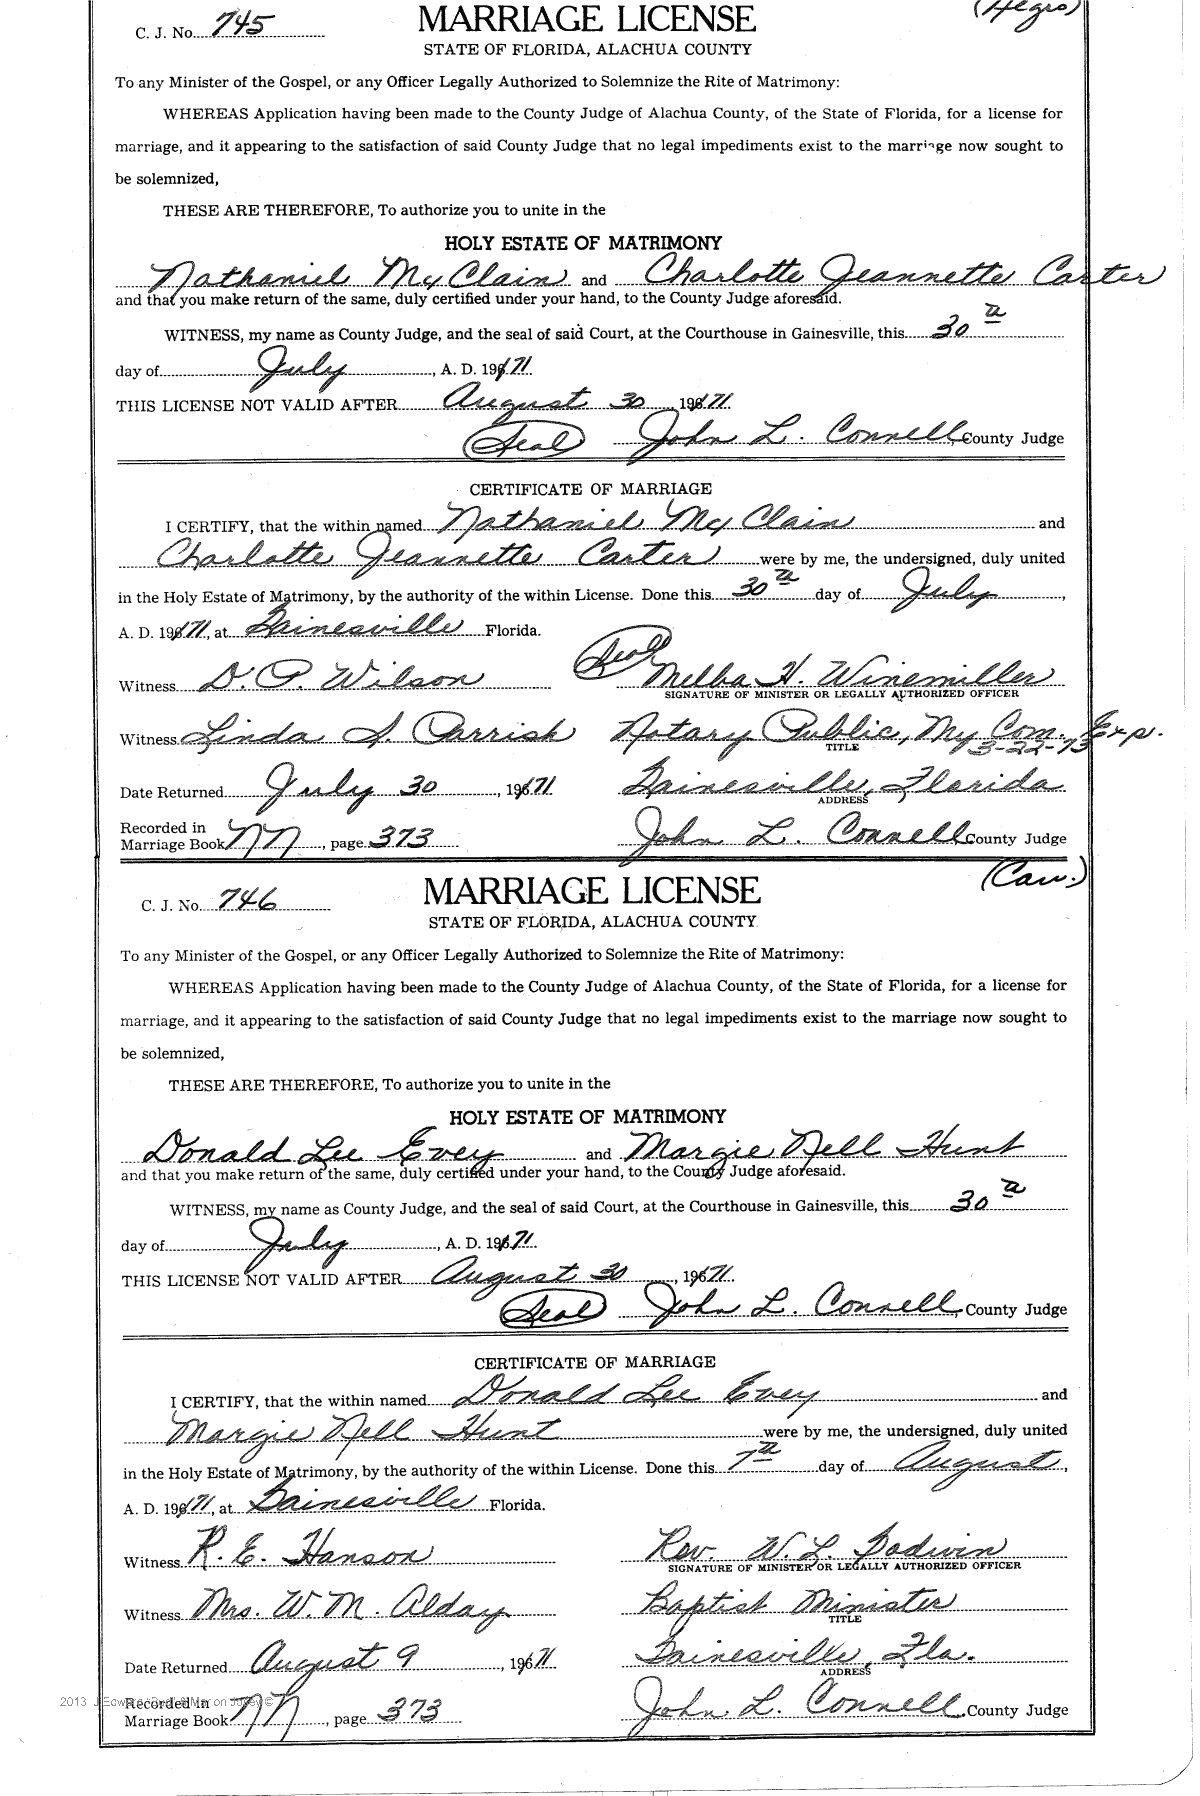 (Negro)
C. J. No. 745 MARRIAGE LICENSE
STATE OF FLORIDA, ALACHUA COUNTY
To any Minister of the Gospel, or any Officer Legally Authorized to Solemnize the Rite of Matrimony:
WHEREAS Application having been made to the County Judge of Alachua County, of the State of Florida, for a license for
marriage, and it appearing to the satisfaction of said County Judge that no legal impediments exist to the marriage now sought to
be solemnized,
THESE ARE THEREFORE, To authorize you to unite in the
HOLY ESTATE OF MATRIMONY
Nathaniel McClain and Charlotte Jeannette Carter
and that you make return of the same, duly certified under your hand, to the County Judge aforesaid.
WITNESS, my name as County Judge, and the seal of said Court, at the Courthouse in Gainesville, this 30th
day of July, A. D. 1971
THIS LICENSE NOT VALID AFTER August 30 1971
(Seal) John L. Connell, County Judge
CERTIFICATE OF MARRIAGE
I CERTIFY, that the within named Nathaniel McClain and
Charlotte Jeannette Carter were by me, the undersigned, duly united
in the Holy Estate of Matrimony, by the authority of the within License. Done this 30th day of July,
A. D. 1971, at Gainesville Florida.
Witness D. P. Wilson (Seal) Melba H. Winemiller
SIGNATURE OF MINISTER OR LEGALLY AUTHORIZED OFFICER
Witness Linda S. Parrish Notary Public, My Com. Exp.
TITLE 3-22-73
Date Returned July 30, 1971 Gainesville, Florida
ADDRESS
Recorded in
Marriage Book NN, page 373 John L. Connell County Judge
(Cau.)
C. J. No. 746 MARRIAGE LICENSE
STATE OF FLORIDA, ALACHUA COUNTY
To any Minister of the Gospel, or any Officer Legally Authorized to Solemnize the Rite of Matrimony:
WHEREAS Application having been made to the County Judge of Alachua County, of the State of Florida, for a license for
marriage, and it appearing to the satisfaction of said County Judge that no legal impediments exist to the marriage now sought to
be solemnized,
THESE ARE THEREFORE, To authorize you to unite in the
HOLY ESTATE OF MATRIMONY
Donald Lee Evey and Margie Nell Hunt
and that you make return of the same, duly certified under your hand, to the County Judge aforesaid.
WITNESS, my name as County Judge, and the seal of said Court, at the Courthouse in Gainesville, this 30th
day of July, A. D. 1971
THIS LICENSE NOT VALID AFTER August 30, 1971
(Seal) John L. Connell, County Judge
CERTIFICATE OF MARRIAGE
I CERTIFY, that the within named Donald Lee Evey and
Margie Nell Hunt were by me, the undersigned, duly united
in the Holy Estate of Matrimony, by the authority of the within License. Done this 7th day of August,
A. D. 1971, at Gainesville Florida.
Witness R. E. Hanson Rev. W. L. Godwin
SIGNATURE OF MINISTER OR LEGALLY AUTHORIZED OFFICER
Witness Mrs. W. M. Alday Baptist Minister
TITLE
Date Returned August 9, 1971 Gainesville, Fla.
ADDRESS
2013
Recorded in
Marriage Book NN, page 373 John L. Connell, County Judge